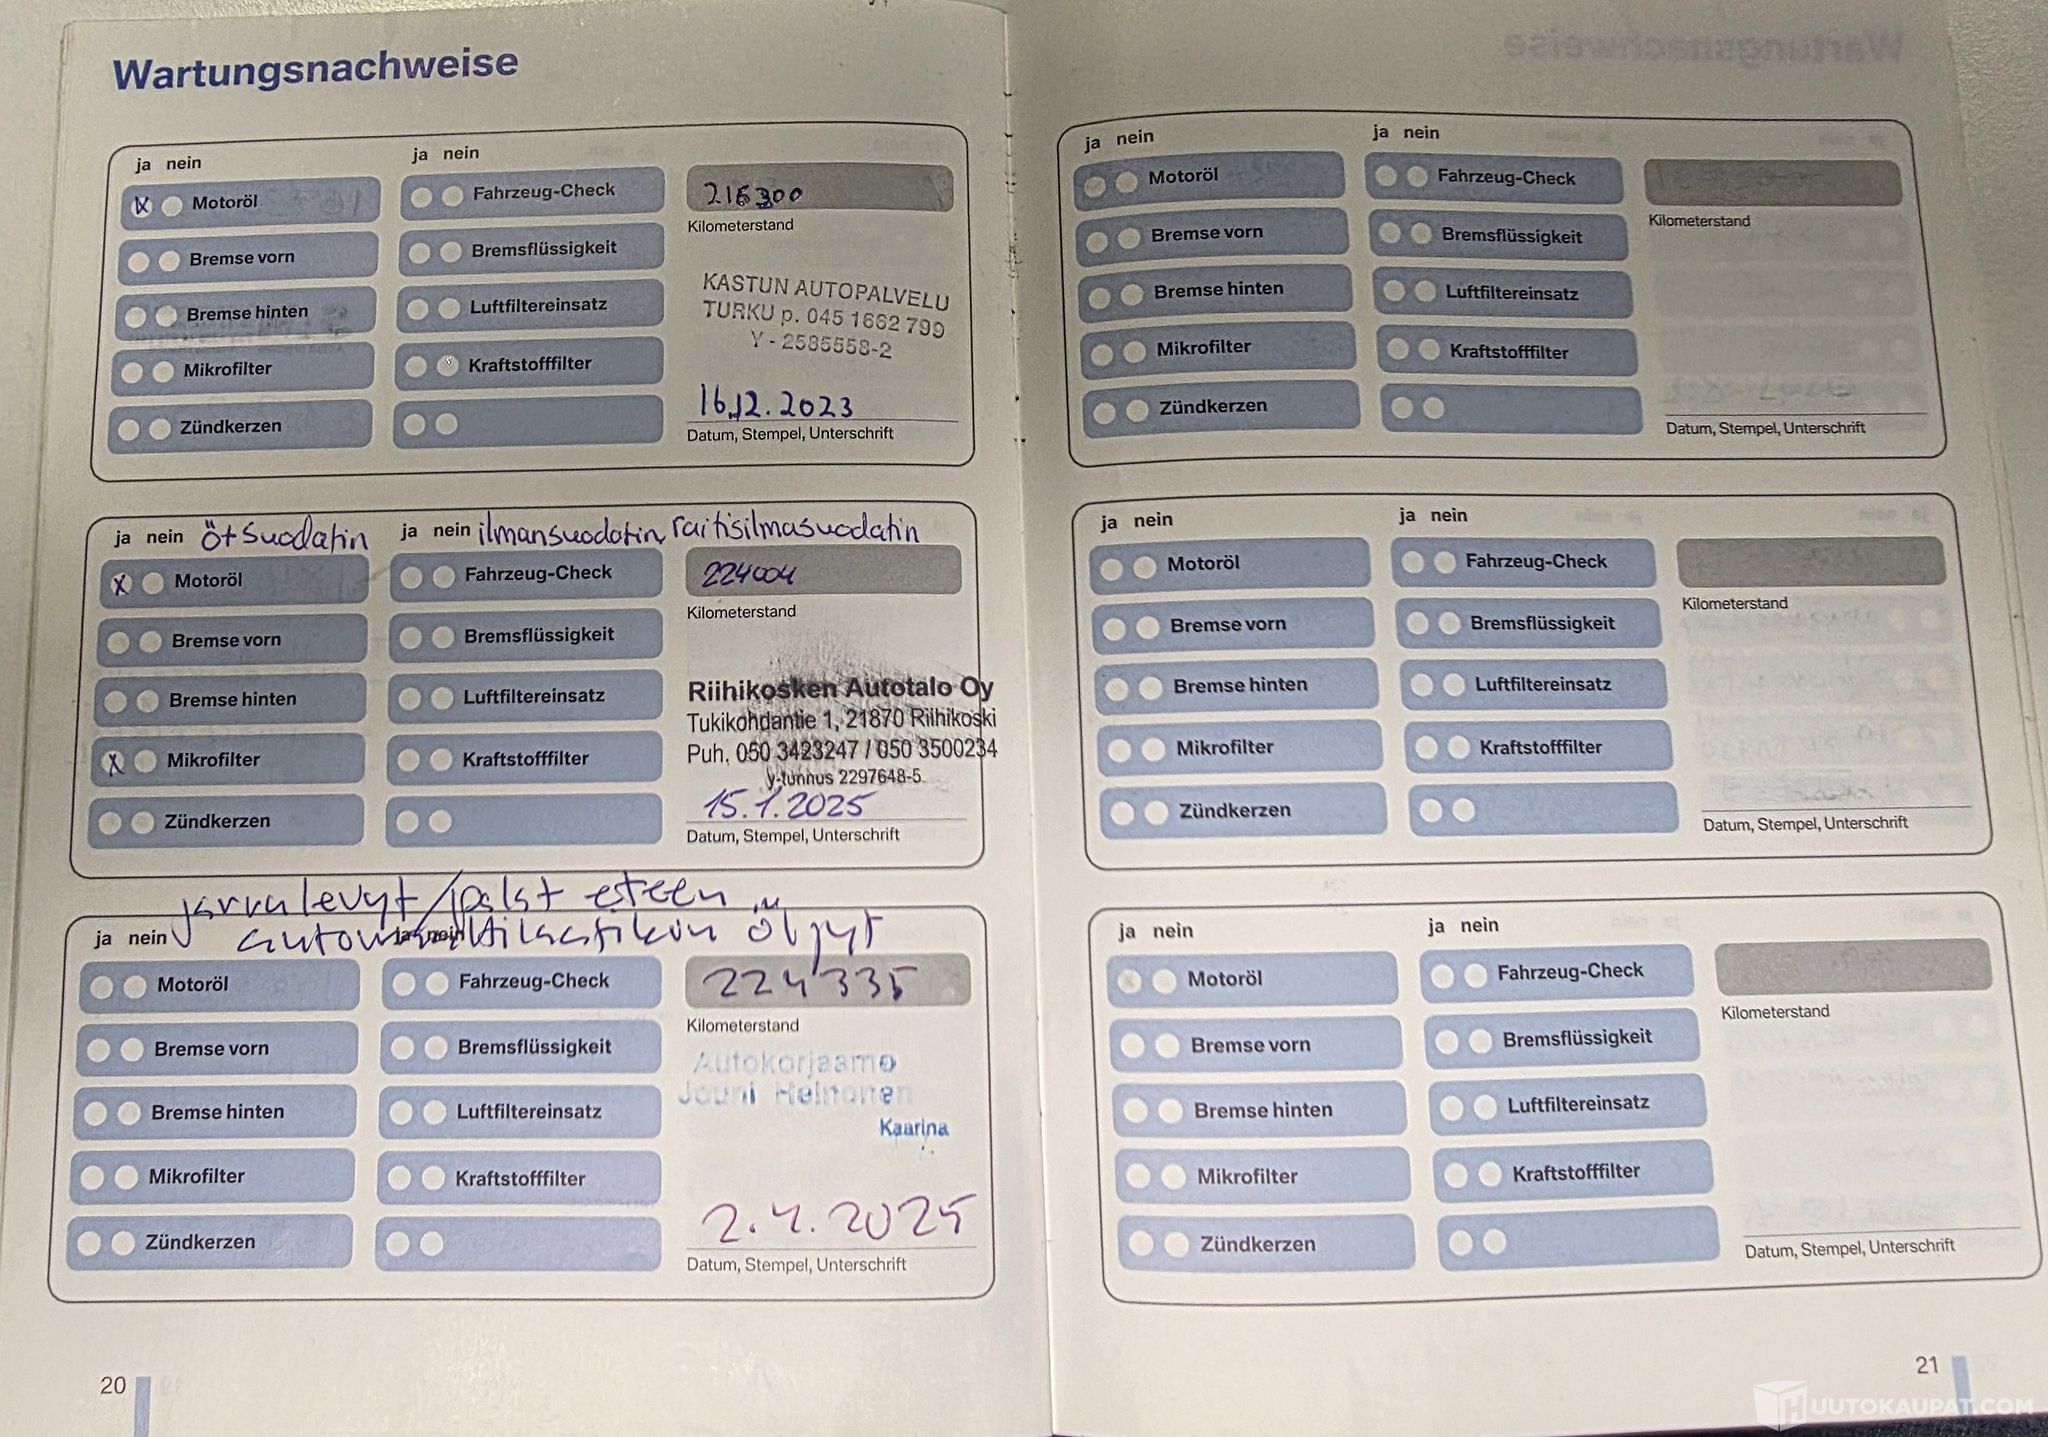 Wartungsnachweise
ja nein
ja nein
Motoröl
Fahrzeug-Check
216300
Bremse vorn
Bremsflüssigkeit
Kilometerstand
Bremse hinten
Luftfiltereinsatz
KASTUN AUTOPALVELU
TURKU p. 045 1662 799
Y - 2585558-2
Mikrofilter
Kraftstofffilter
Zündkerzen
16.12.2023
Datum, Stempel, Unterschrift
ja nein ötsuodatin
ja nein ilmansuodatin, raitisilmasuodatin
X Motoröl
Fahrzeug-Check
224004
Bremse vorn
Bremsflüssigkeit
Kilometerstand
Bremse hinten
Luftfiltereinsatz
Riihikosken Autotalo Oy
Tukikohdantie 1, 21870 Riihikoski
Puh. 050 3423247 / 050 3500234
y-tunnus 2297648-5
X Mikrofilter
Kraftstofffilter
Zündkerzen
15.1.2025
Datum, Stempel, Unterschrift
jarrulevyt/palat eteen
ja nein
ja nein
öljyt
Motoröl
Fahrzeug-Check
224335
Bremse vorn
Bremsflüssigkeit
Kilometerstand
Bremse hinten
Luftfiltereinsatz
Autokorjaamo
Jouni Heinonen
Kaarina
Mikrofilter
Kraftstofffilter
Zündkerzen
2.4.2025
Datum, Stempel, Unterschrift
20
ja nein
ja nein
Motoröl
Fahrzeug-Check
Bremse vorn
Bremsflüssigkeit
Kilometerstand
Bremse hinten
Luftfiltereinsatz
Mikrofilter
Kraftstofffilter
Zündkerzen
Datum, Stempel, Unterschrift
ja nein
ja nein
Motoröl
Fahrzeug-Check
Bremse vorn
Bremsflüssigkeit
Kilometerstand
Bremse hinten
Luftfiltereinsatz
Mikrofilter
Kraftstofffilter
Zündkerzen
Datum, Stempel, Unterschrift
ja nein
ja nein
Motoröl
Fahrzeug-Check
Bremse vorn
Bremsflüssigkeit
Kilometerstand
Bremse hinten
Luftfiltereinsatz
Mikrofilter
Kraftstofffilter
Zündkerzen
Datum, Stempel, Unterschrift
21
HUUTOKAUPAT.COM